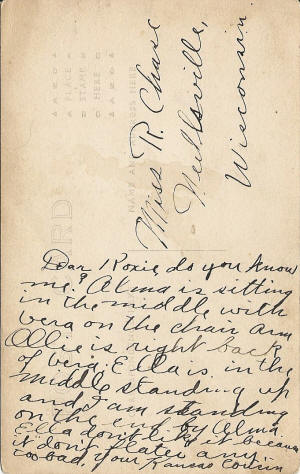 Miss R. Chase
Neillsville,
Wisconsin
PLACE
STAMP
HERE
NAME AND ADDRESS HERE
Dear Roxie, do you know
me? Alma is sitting
in the middle with
vera on the chair arm
Ollie is right back
of vera, Ella is in the
middle standing up
and I am standing
on the end by Alma.
Ella don't like it because
it don't flater any
too bad, your Kansas Cousin